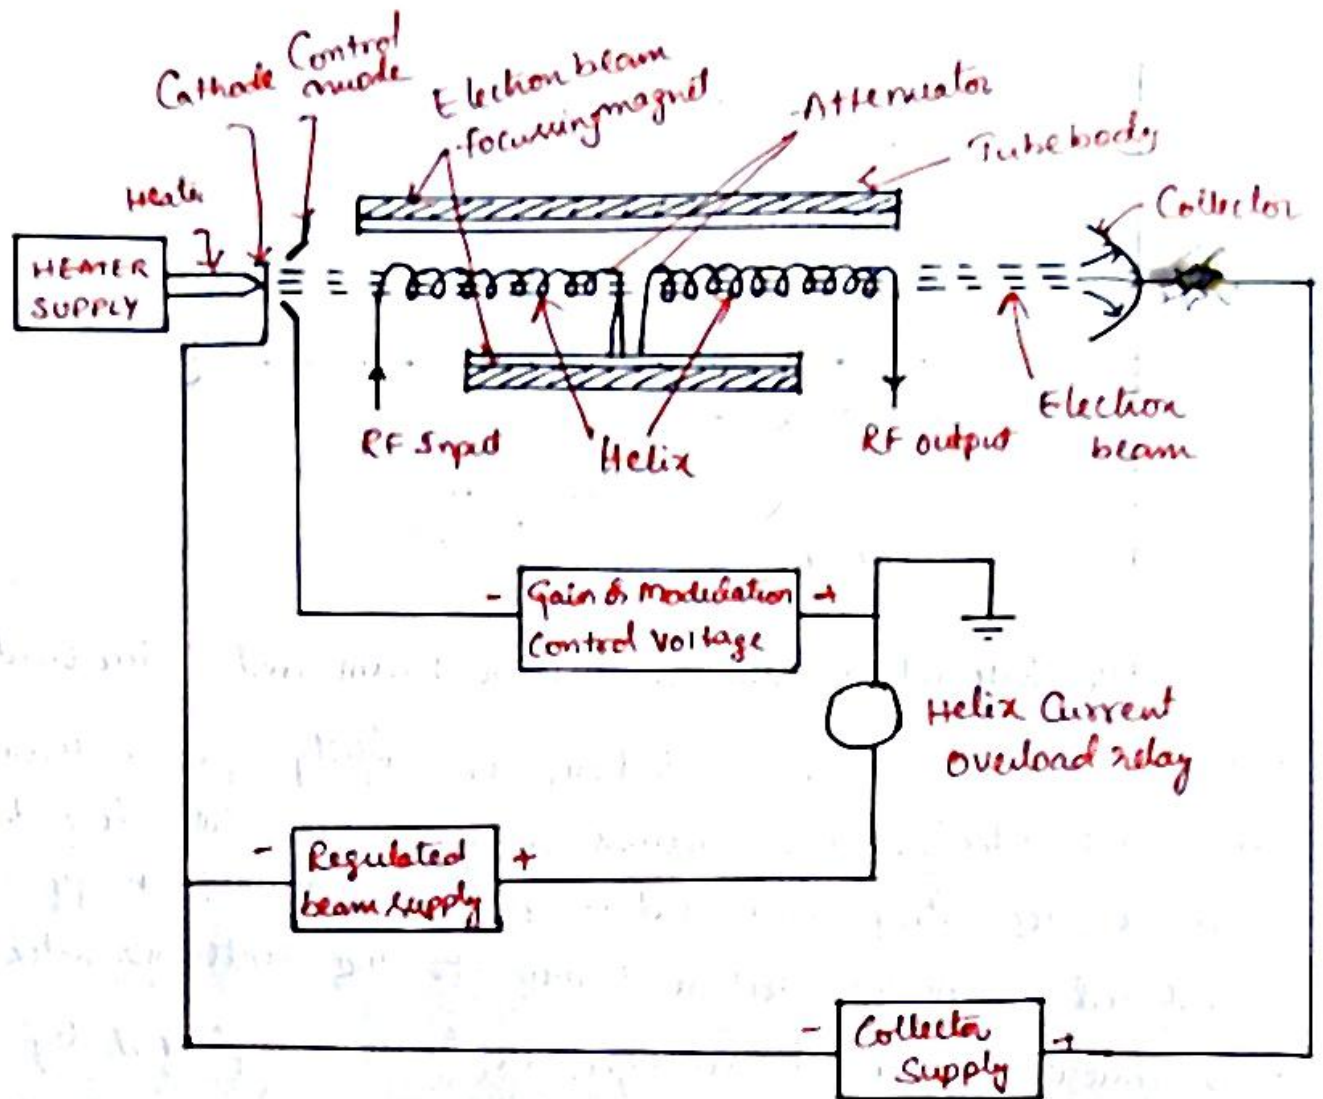 Control
Cathode anode
Electron beam
focussing magnet
Attenuator
Tube body
Heater
Collector
HEATER
SUPPLY
RF Input
Helix
RF output
Electron
beam
- Gain & Modulation +
Control Voltage
Helix Current
Overload relay
- Regulated +
beam supply
- Collector +
Supply